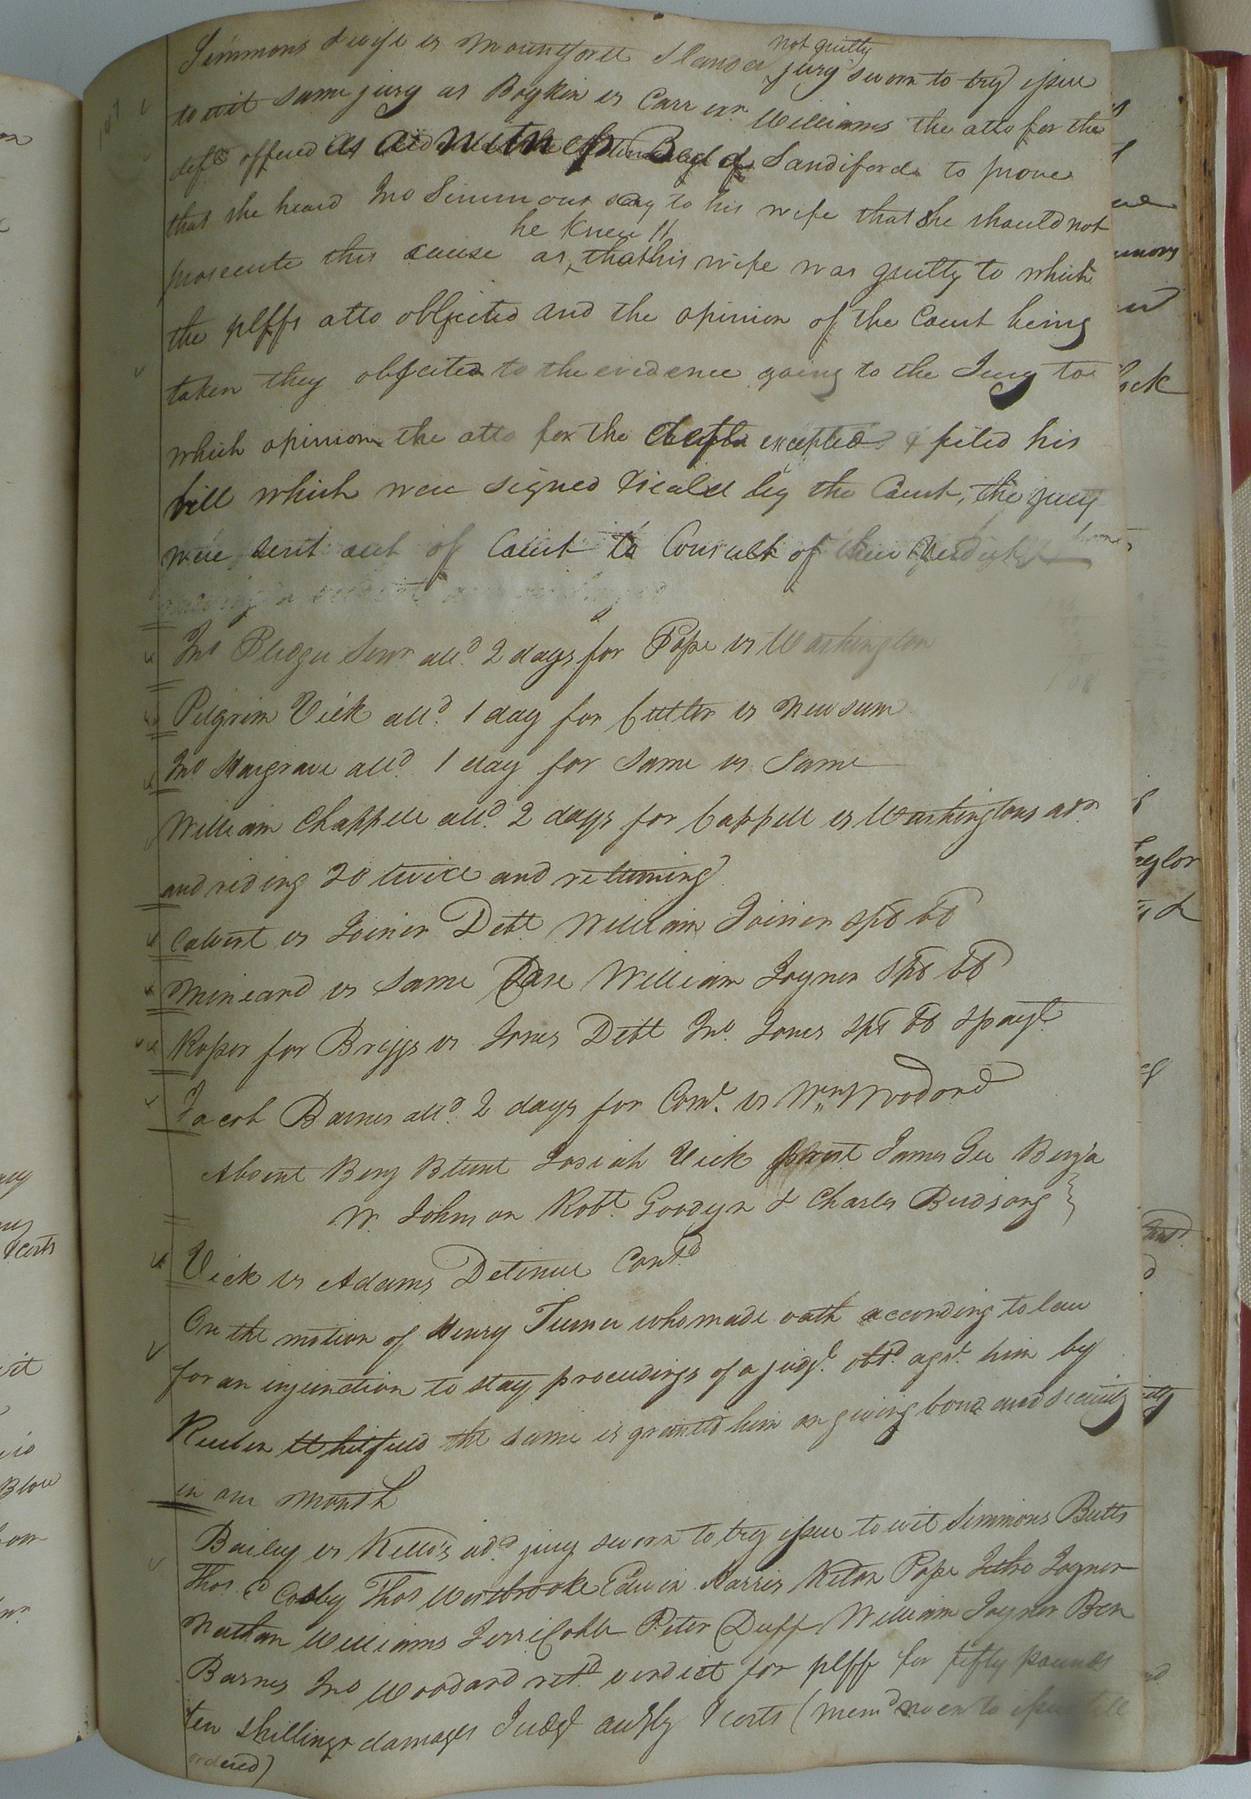 not guilty
Simmons & wife vs Mountfort Slander jury sworn to try issue
to wit same jury as Boykin vs Carr exr Williams the atto for the
deft offered as a witness Sandiford to prove
that she heard Jno Simmons say to his wife that she should not
he knew
prosecute this cause as that his wife was guilty to which
the plffs atto objected and the opinion of the Court being
taken they objected to the evidence going to the Jury to
which opinion the atto for the defts excepted & filed his
bill which were signed & seald by the Court, the jury
were sent out of Court to Consult of their Verdict
Jno Pledger Senr alld. 2 days for Pope vs Washington
Pilgrim Vick alld. 1 day for Cutler vs Newsum
Jno Hargrave alld. 1 day for Same vs Same
William Chappell alld. 2 days for Cappell vs Washingtons adr
and riding 20 twice and returning
Calvert vs Joiner Debt William Joiner spb bb
Mineard vs Same Case William Joyner spb bb
Roper for Briggs vs Jones Debt Jno. Jones spb bb & payt.
Jacob Barnes alld. 2 days for Comt. vs Wm Woodard
Absent Benj Blunt Josiah Vick present James Gee Benja
W. Johnson Robt. Goodyn & Charles Birdsong
Vick vs Adams Detinue Contd
On the motion of Henry Turner who made oath according to law
for an injunction to stay proceedings of a judgt. obtd. agst. him by
Reuben Whitfield the same is granted him on giving bond and security
in one month
Bailey vs Kello's ad. jury sworn to try issue to wit Simmons Butts
Thos. Cobby Thos Westbrooke Edwin Harris Nathan Pope Jethro Joyner
Nathan Williams Jerri Cobb Peter Duff William Joyner Ben
Barnes Jno Woodard retd verdict for plff for fifty pounds
ten shillings damages Judgt accgly & costs (memd no exn to issue till
ordered)